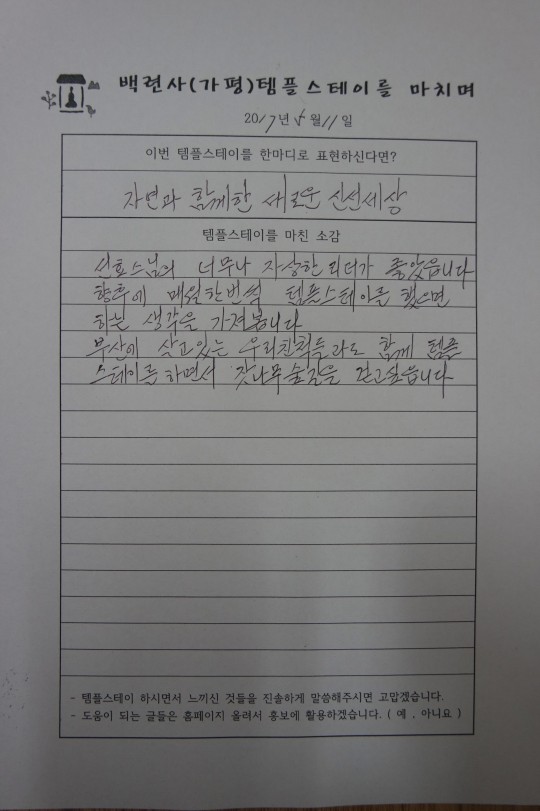 백련사(가평)템플스테이를 마치며
2017년 5월 11일
이번 템플스테이를 한마디로 표현하신다면?
자연과 함께한 새로운 신선세상
템플스테이를 마친 소감
선효스님의 너무나 자상한 리더가 좋았읍니다
향후에 매월한번씩 템플스테이를 했으면
하는 생각을 가져봅니다
부산에 살고있는 우리친척들과도 함께 템플
스테이를 하면서 잣나무숲길을 걷고싶읍니다
- 템플스테이 하시면서 느끼신 것들을 진솔하게 말씀해주시면 고맙겠습니다.
- 도움이 되는 글들은 홈페이지 올려서 홍보에 활용하겠습니다. ( 예 , 아니요 )